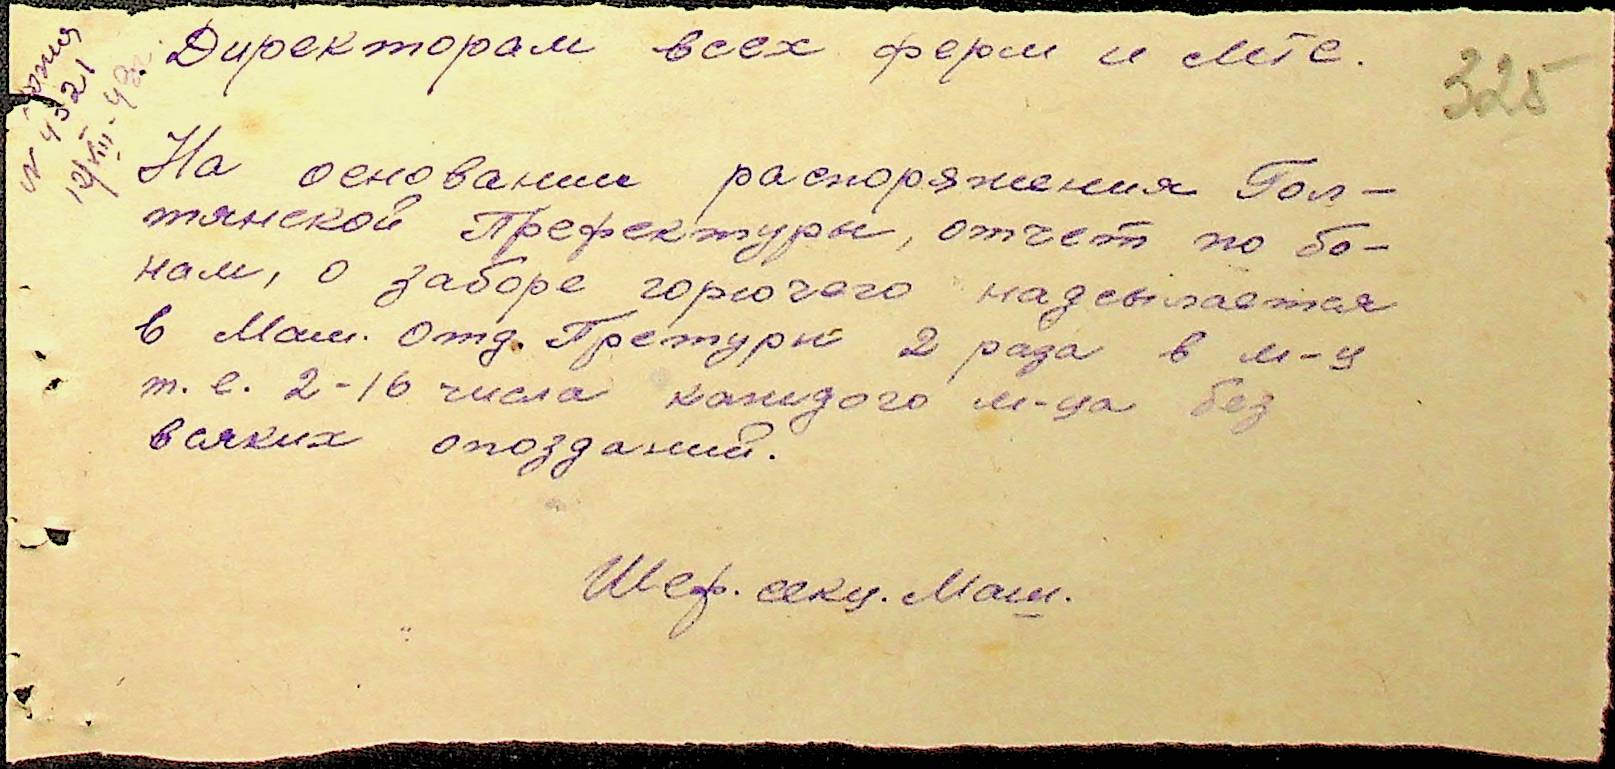 Копия
N 4321
12/VIII-42г.
Директорам всех ферм и МТС.
325
На основании распоряжения Гол-
тянской Префектуры, отчет по бо-
нам, о заборе горючего надсылается
в Маш. Отд. Претуры 2 раза в м-ц
т. е. 2-16 числа каждого м-ца без
всяких опозданий.
Шеф. секц. Маш.